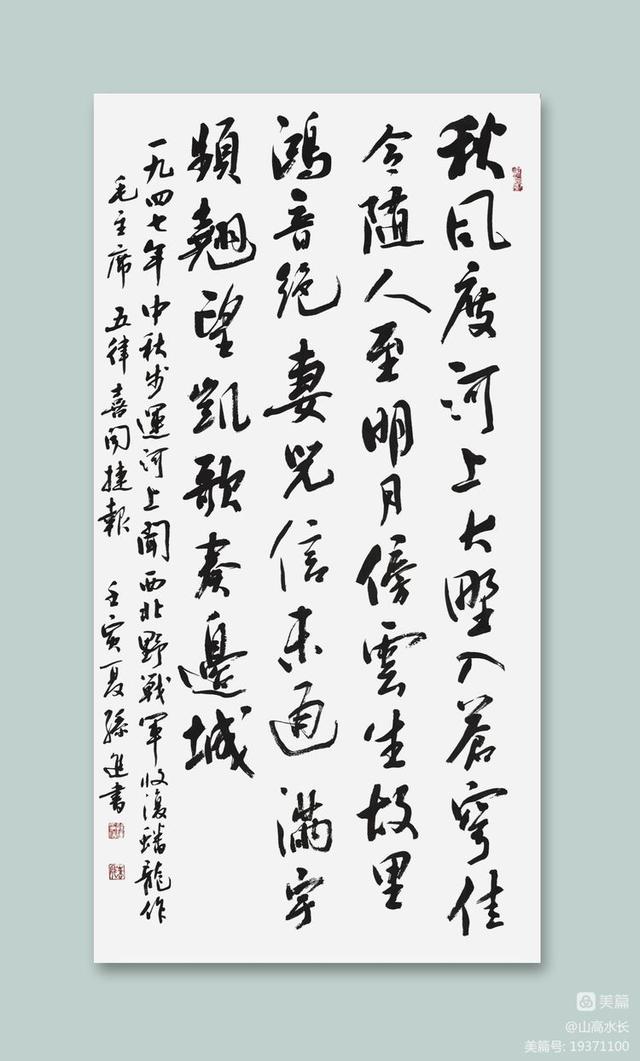 秋风度河上大墅入蒼穹佳
令随人至明月傍雲生故里
鸿音绝妻兒信未通滿宇
頻翹望凱歌奏邊城
一九四七年中秋步運河上聞西北野戰軍收復蟠龍作
毛主席 五律喜闻捷報 壬寅夏孫進書
美篇
@山高水长
美篇号: 19371100